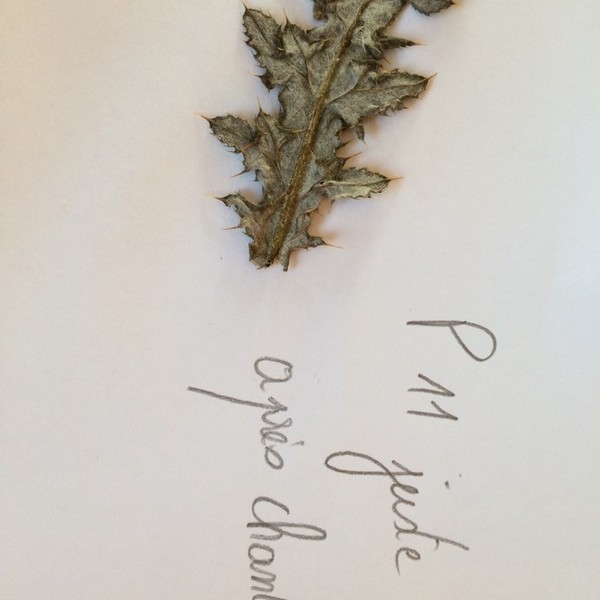 P 11 juste
après chan